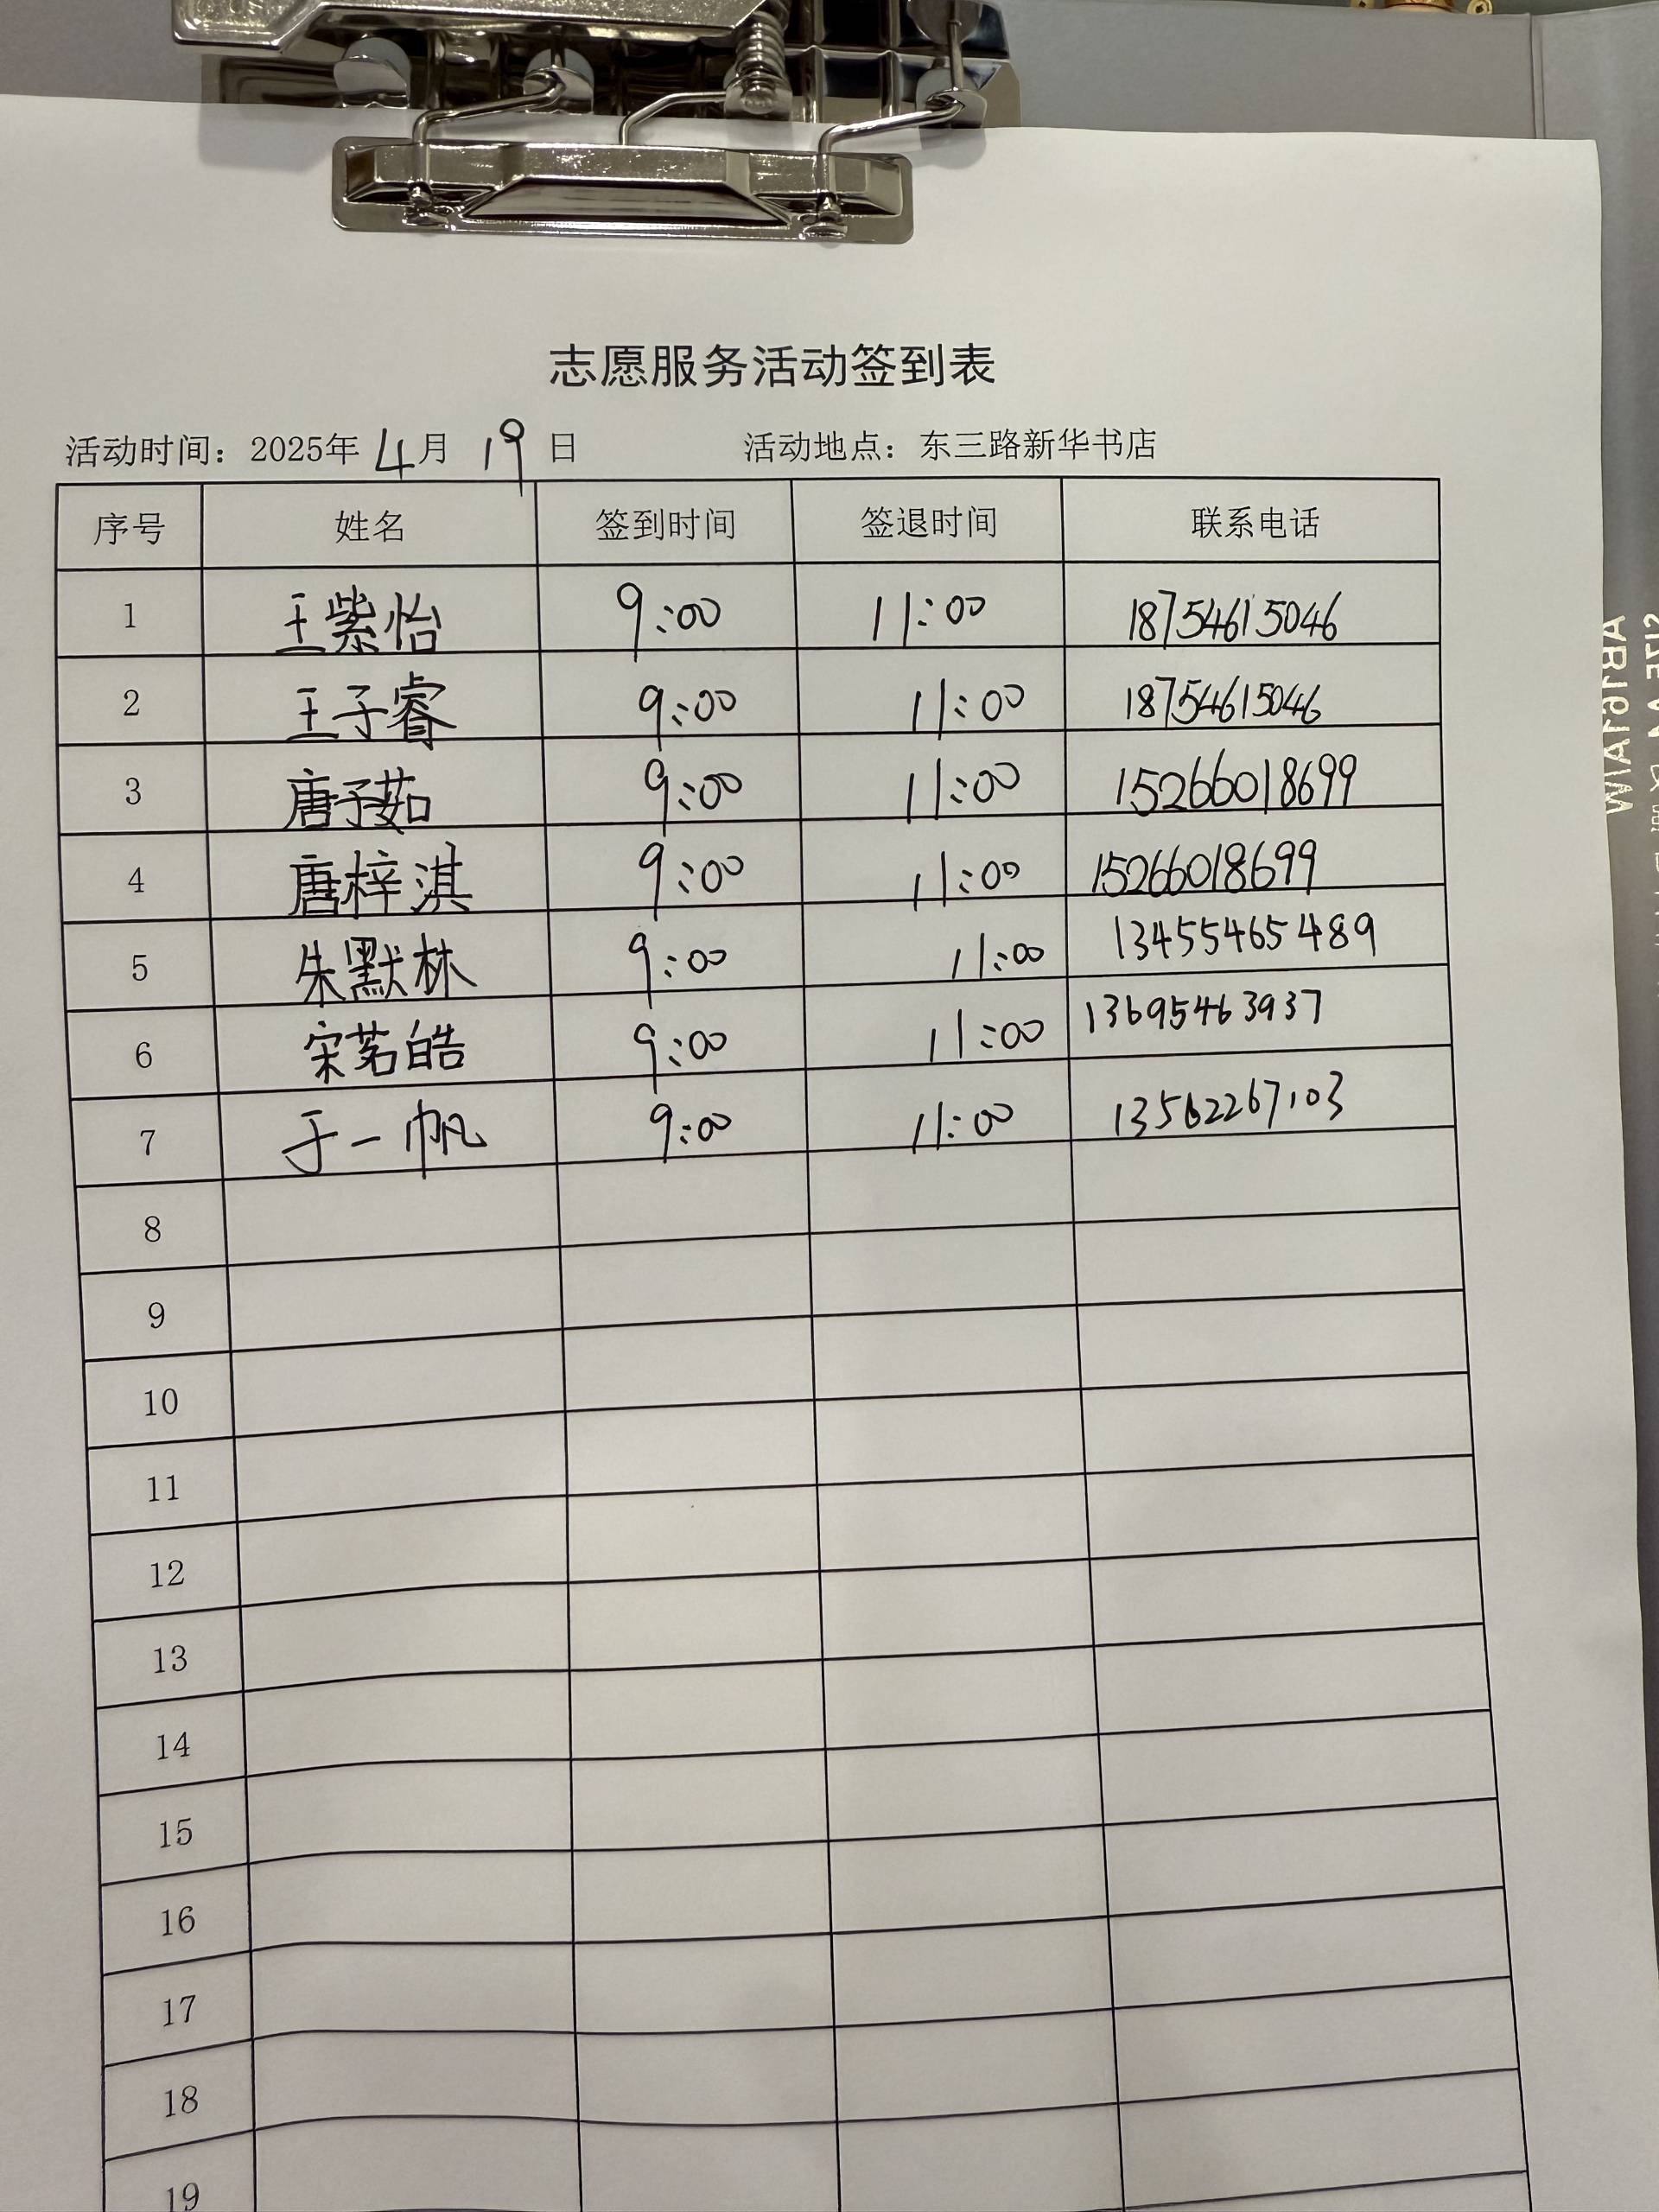 志愿服务活动签到表
活动时间：2025年 4月 19 日 活动地点：东三路新华书店
序号 姓名 签到时间 签退时间 联系电话
1 王紫怡 9:00 11:00 18754615046
2 王子睿 9:00 11:00 18754615046
3 唐予茹 9:00 11:00 15266018699
4 唐梓淇 9:00 11:00 15266018699
5 朱默林 9:00 11:00 13455465489
6 宋茗皓 9:00 11:00 13695463937
7 于一帆 9:00 11:00 13562267103
8
9
10
11
12
13
14
15
16
17
18
19